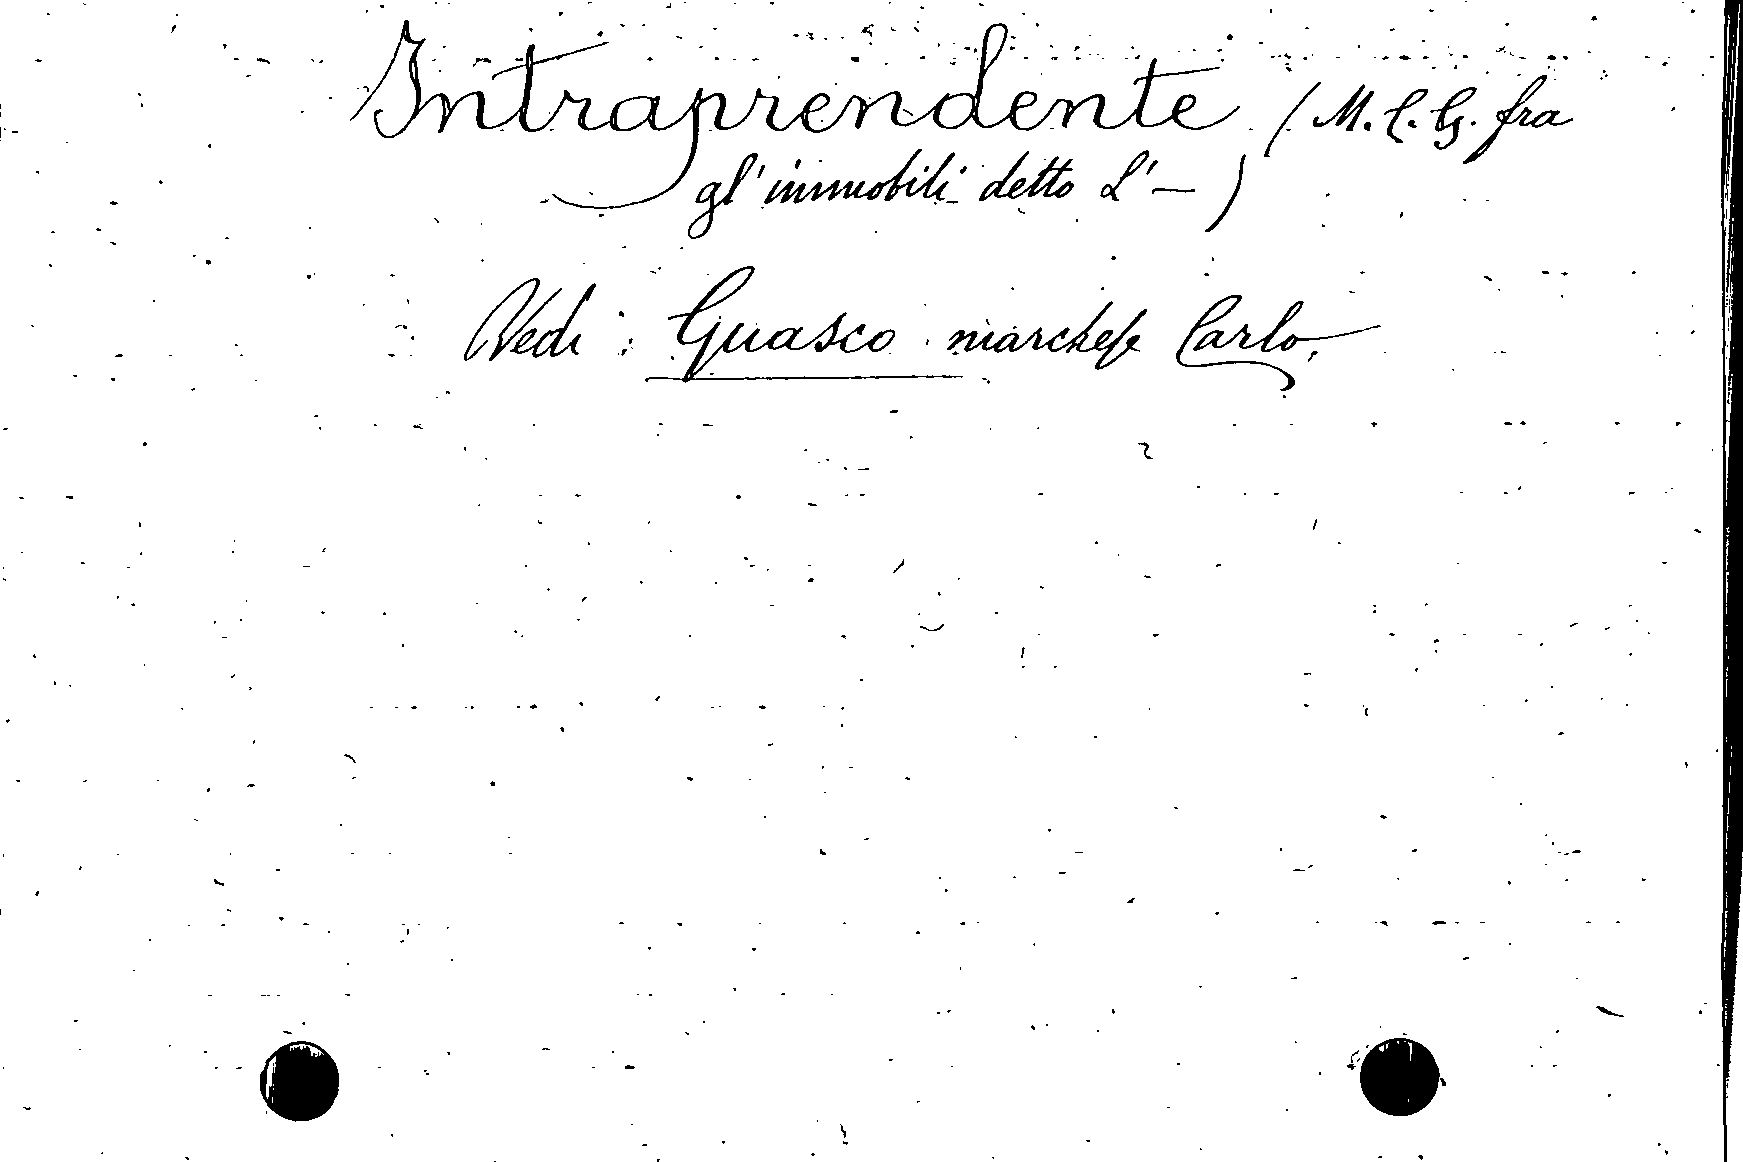 Intraprendente (M. C. G. fra
gl'immobili detto L'—)
Vedi: Guasco marchese Carlo.